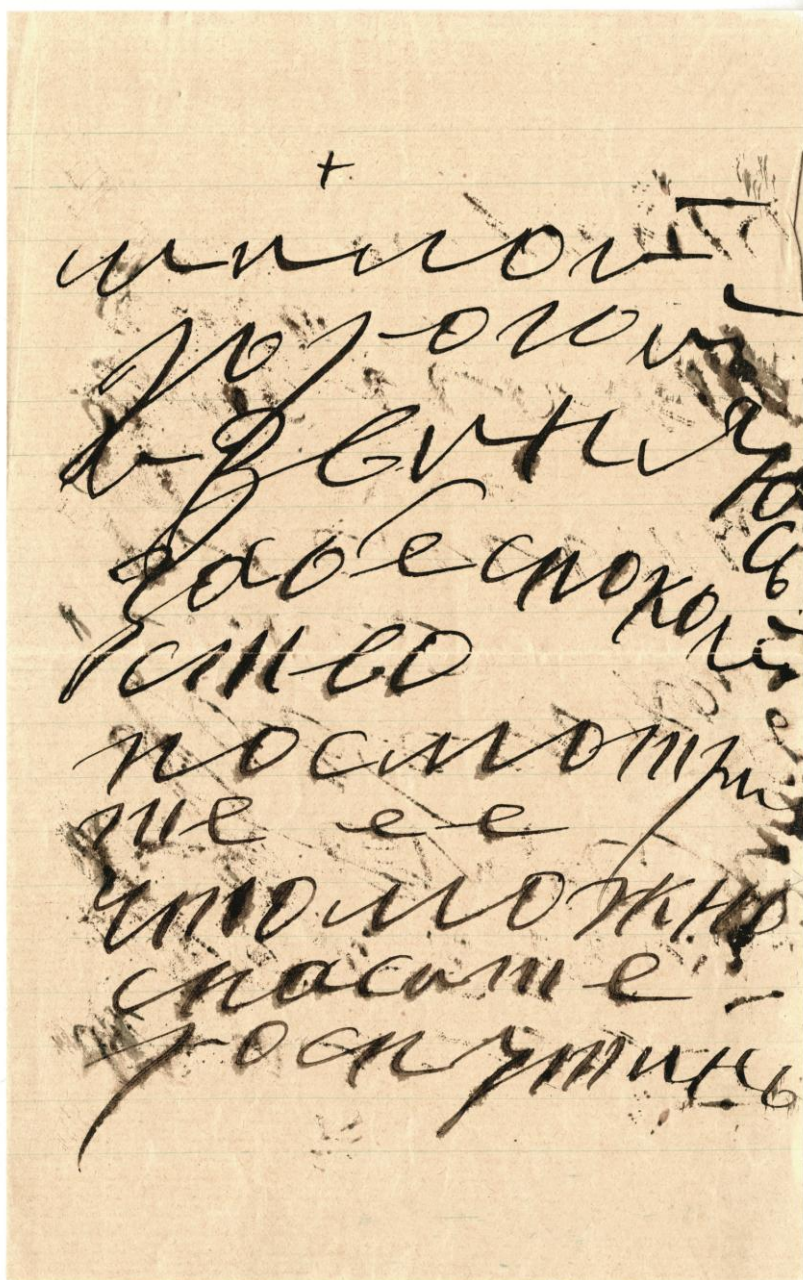 +
милои
дорогой
извиняюсь
забеспокой
ство
посмотри
те ее
что можно
спасите
роспутинь